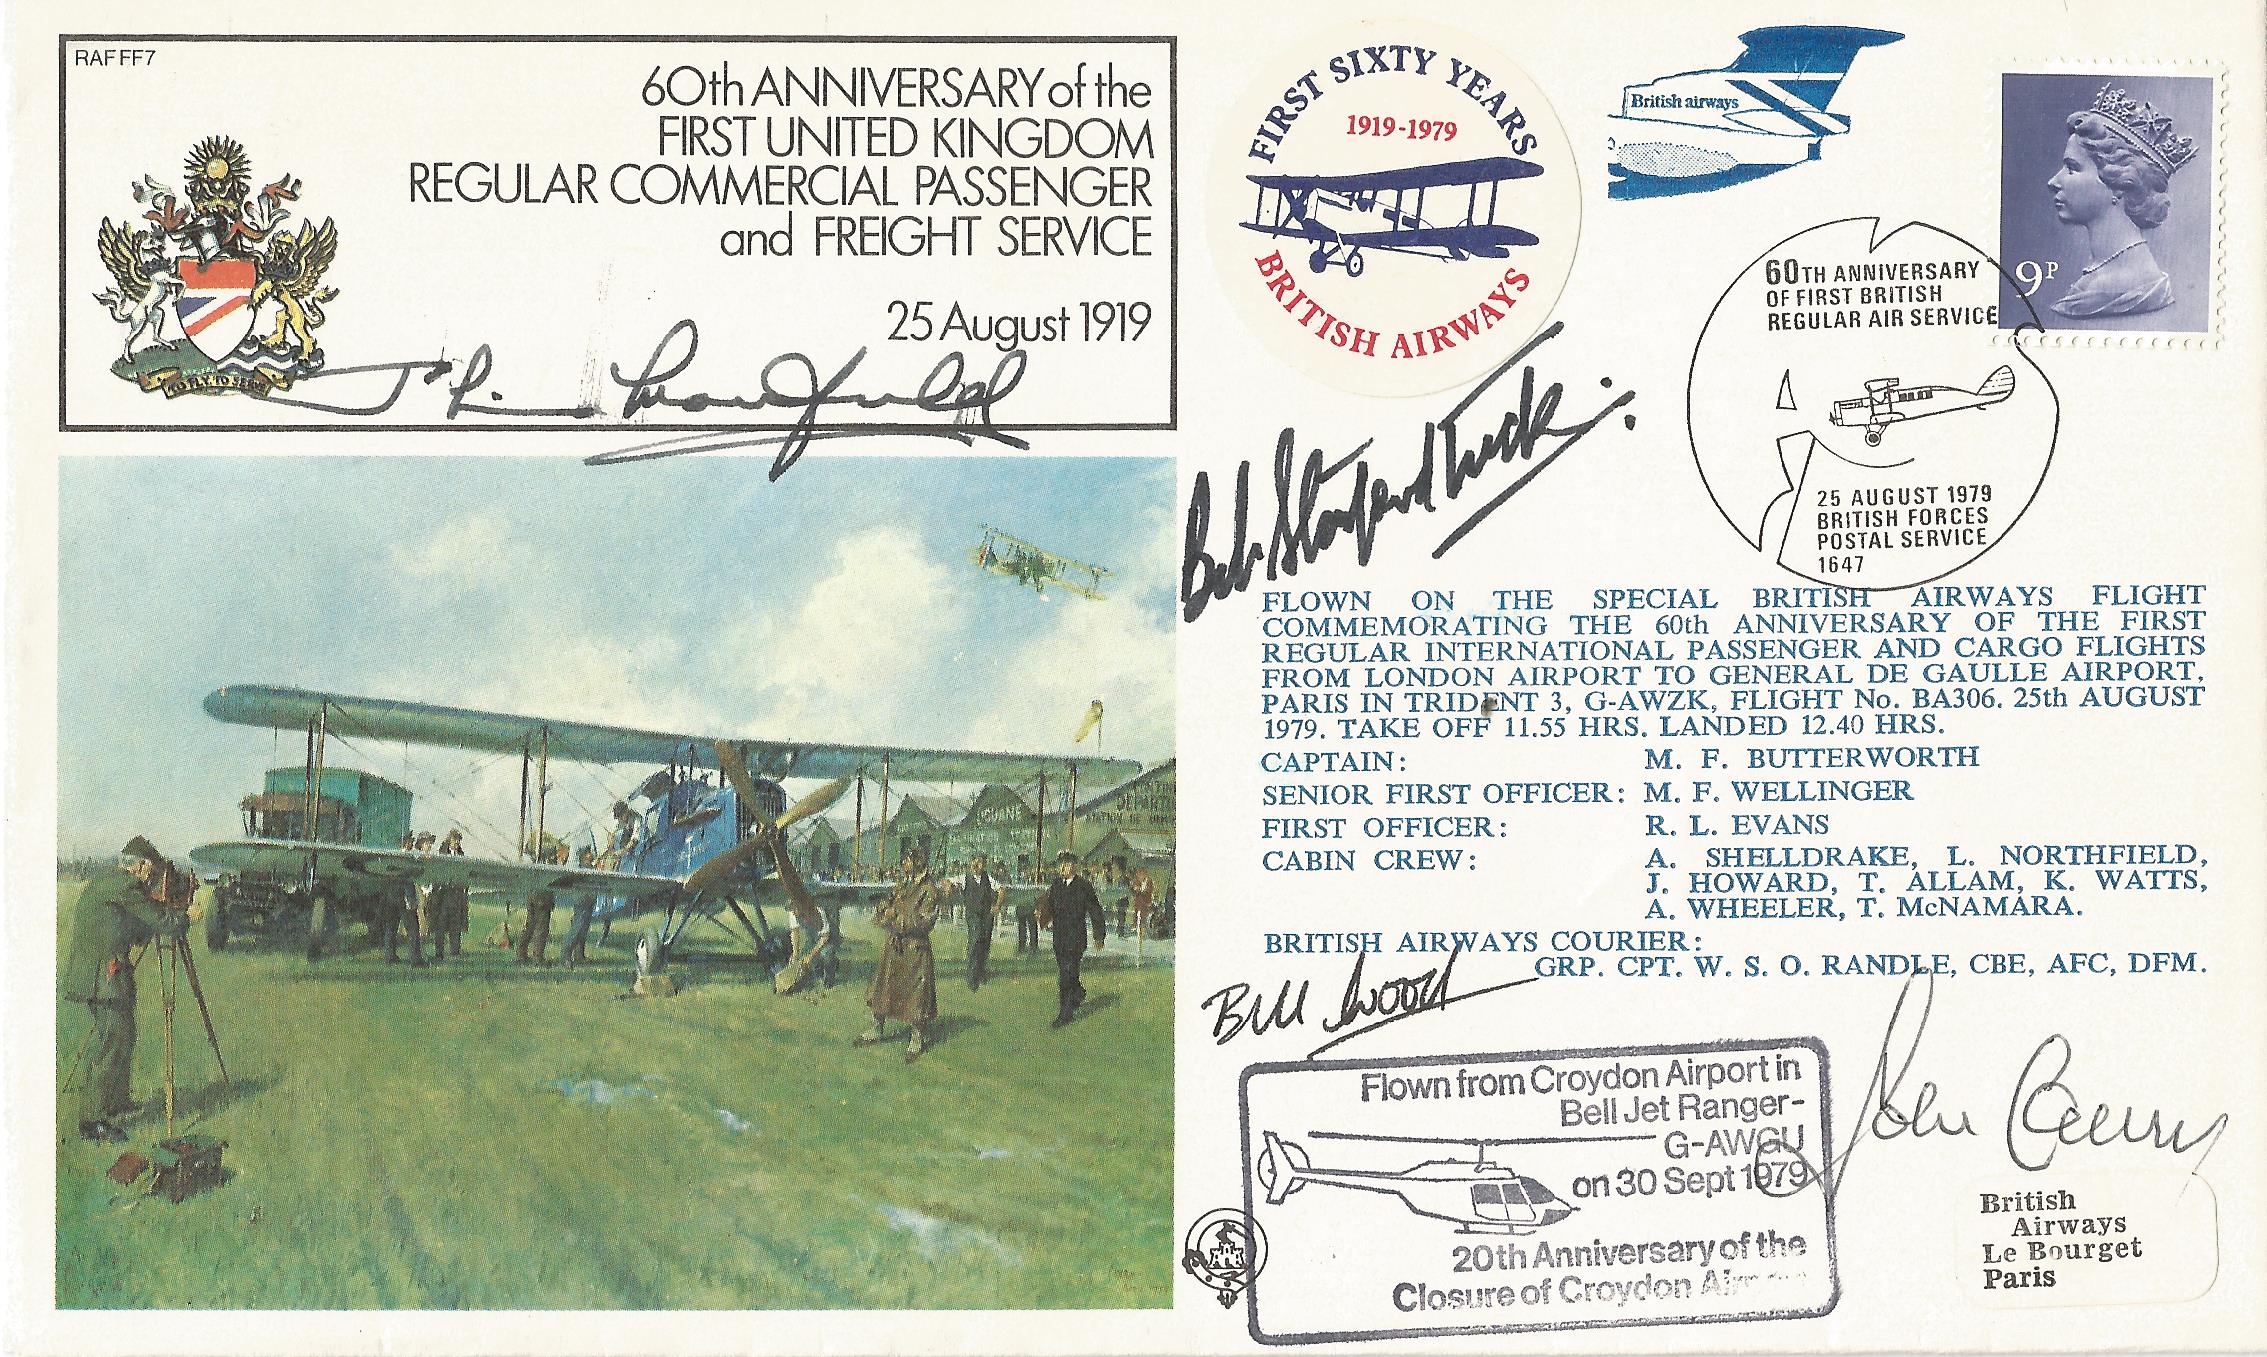 RAF FF7
60th ANNIVERSARY of the
FIRST UNITED KINGDOM
REGULAR COMMERCIAL PASSENGER
and FREIGHT SERVICE
25 August 1919
TO FLY TO SERVE
FIRST SIXTY YEARS
1919-1979
BRITISH AIRWAYS
British airways
9P
60TH ANNIVERSARY
OF FIRST BRITISH
REGULAR AIR SERVICE
25 AUGUST 1979
BRITISH FORCES
POSTAL SERVICE
1647
Bob Stanford Tuck
FLOWN ON THE SPECIAL BRITISH AIRWAYS FLIGHT
COMMEMORATING THE 60th ANNIVERSARY OF THE FIRST
REGULAR INTERNATIONAL PASSENGER AND CARGO FLIGHTS
FROM LONDON AIRPORT TO GENERAL DE GAULLE AIRPORT,
PARIS IN TRIDENT 3, G-AWZK, FLIGHT No. BA306. 25th AUGUST
1979. TAKE OFF 11.55 HRS. LANDED 12.40 HRS.
CAPTAIN: M. F. BUTTERWORTH
SENIOR FIRST OFFICER: M. F. WELLINGER
FIRST OFFICER: R. L. EVANS
CABIN CREW: A. SHELLDRAKE, L. NORTHFIELD,
J. HOWARD, T. ALLAM, K. WATTS,
A. WHEELER, T. McNAMARA.
BRITISH AIRWAYS COURIER:
GRP. CPT. W. S. O. RANDLE, CBE, AFC, DFM.
Bill Wood
Flown from Croydon Airport in
Bell Jet Ranger-
G-AWGU
on 30 Sept 1979
20th Anniversary of the
Closure of Croydon Airport
British
Airways
Le Bourget
Paris